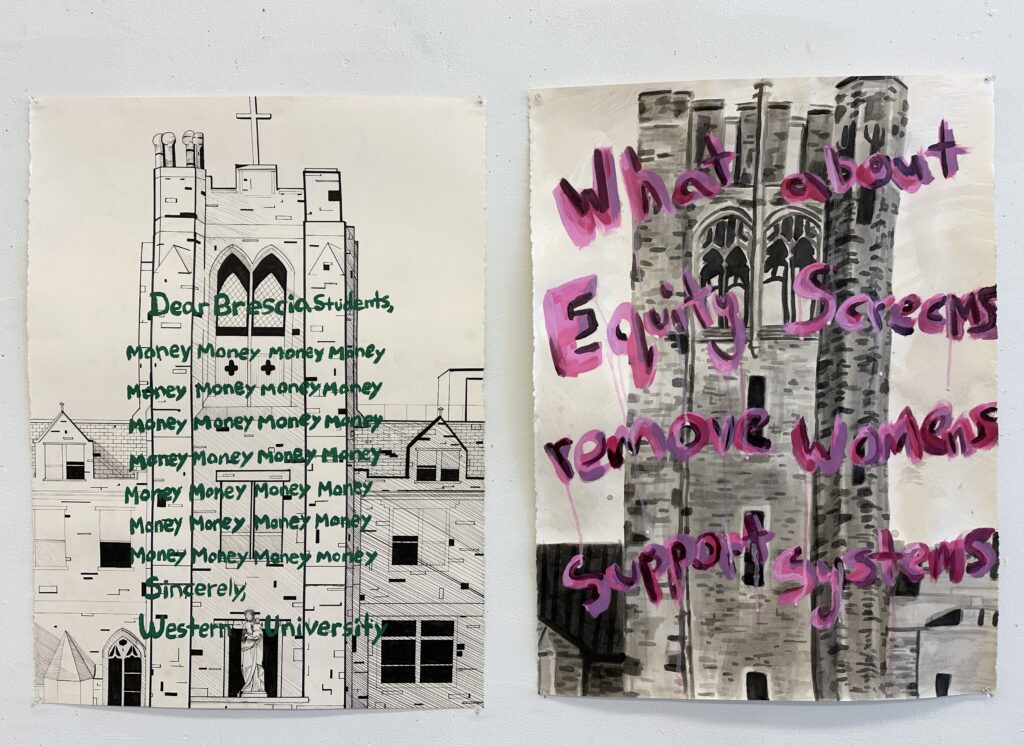 Dear Brescia Students,
Money Money Money Money
Money Money Money Money
Money Money Money Money
Money Money Money Money
Money Money Money Money
Money Money Money Money
Money Money Money money
Sincerely,
Western University
What about
Equity Screams
remove womens
support systems